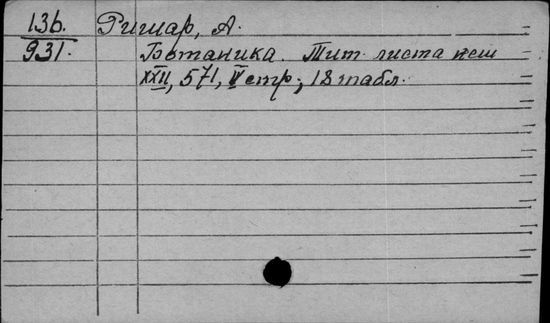 13б. Ришар, А.
931. Ботаника. Тит. листа нет
XXII, 571, II стр., 18 табл.